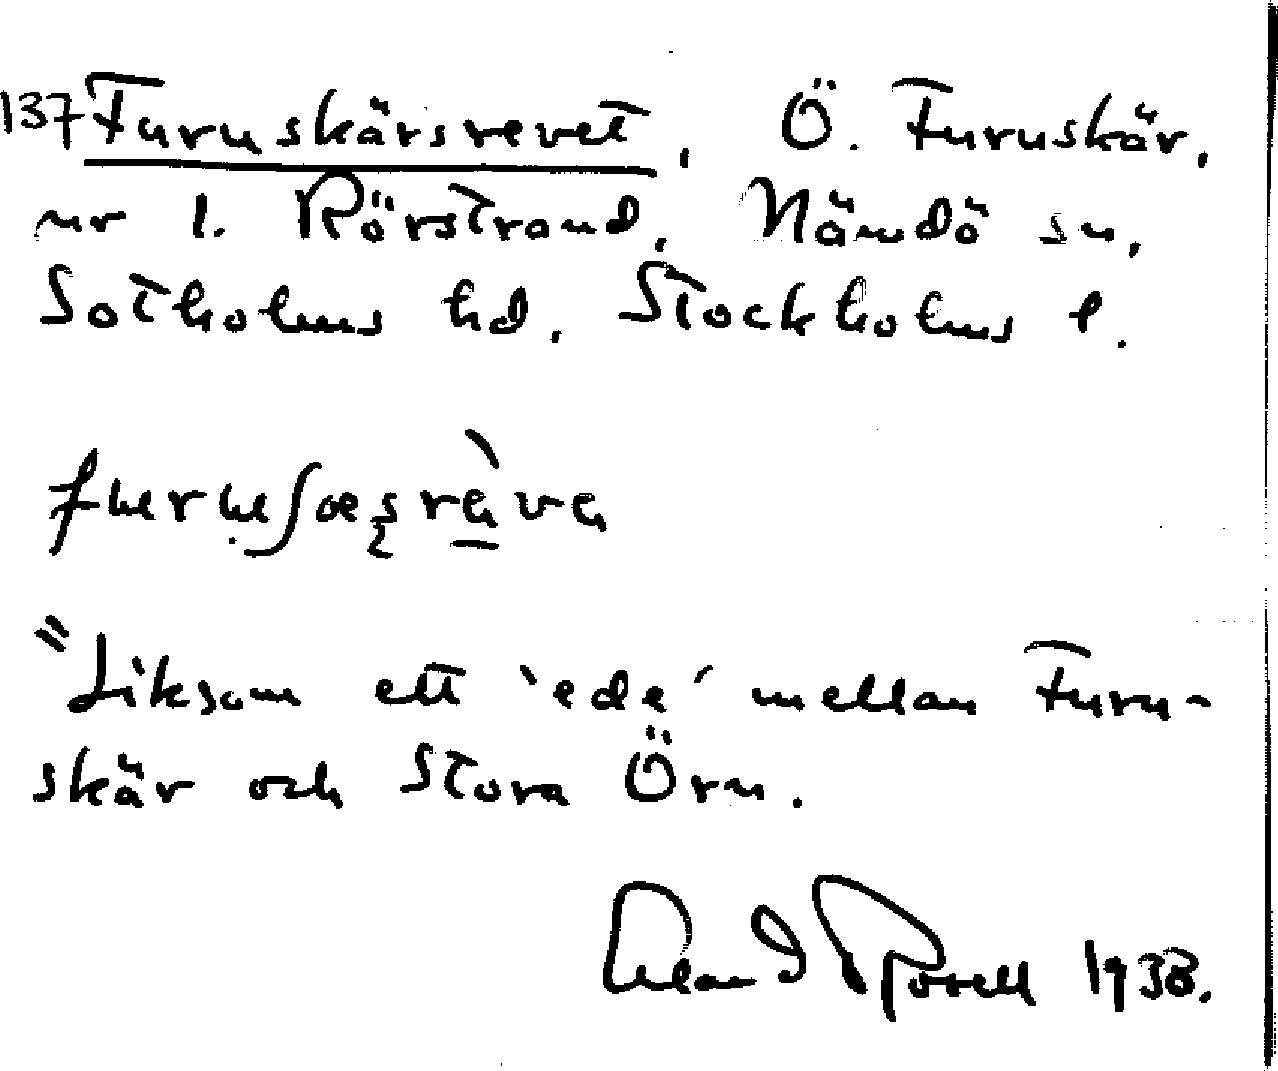 137 Furuskärsrevet, Ö. Furuskär,
nr 1. Rörstrand, Nämdö sn,
Sotholms hd, Stockholms l.
"Liksom ett 'ede' mellan Furu-
skär och Stora Örn.
1938.